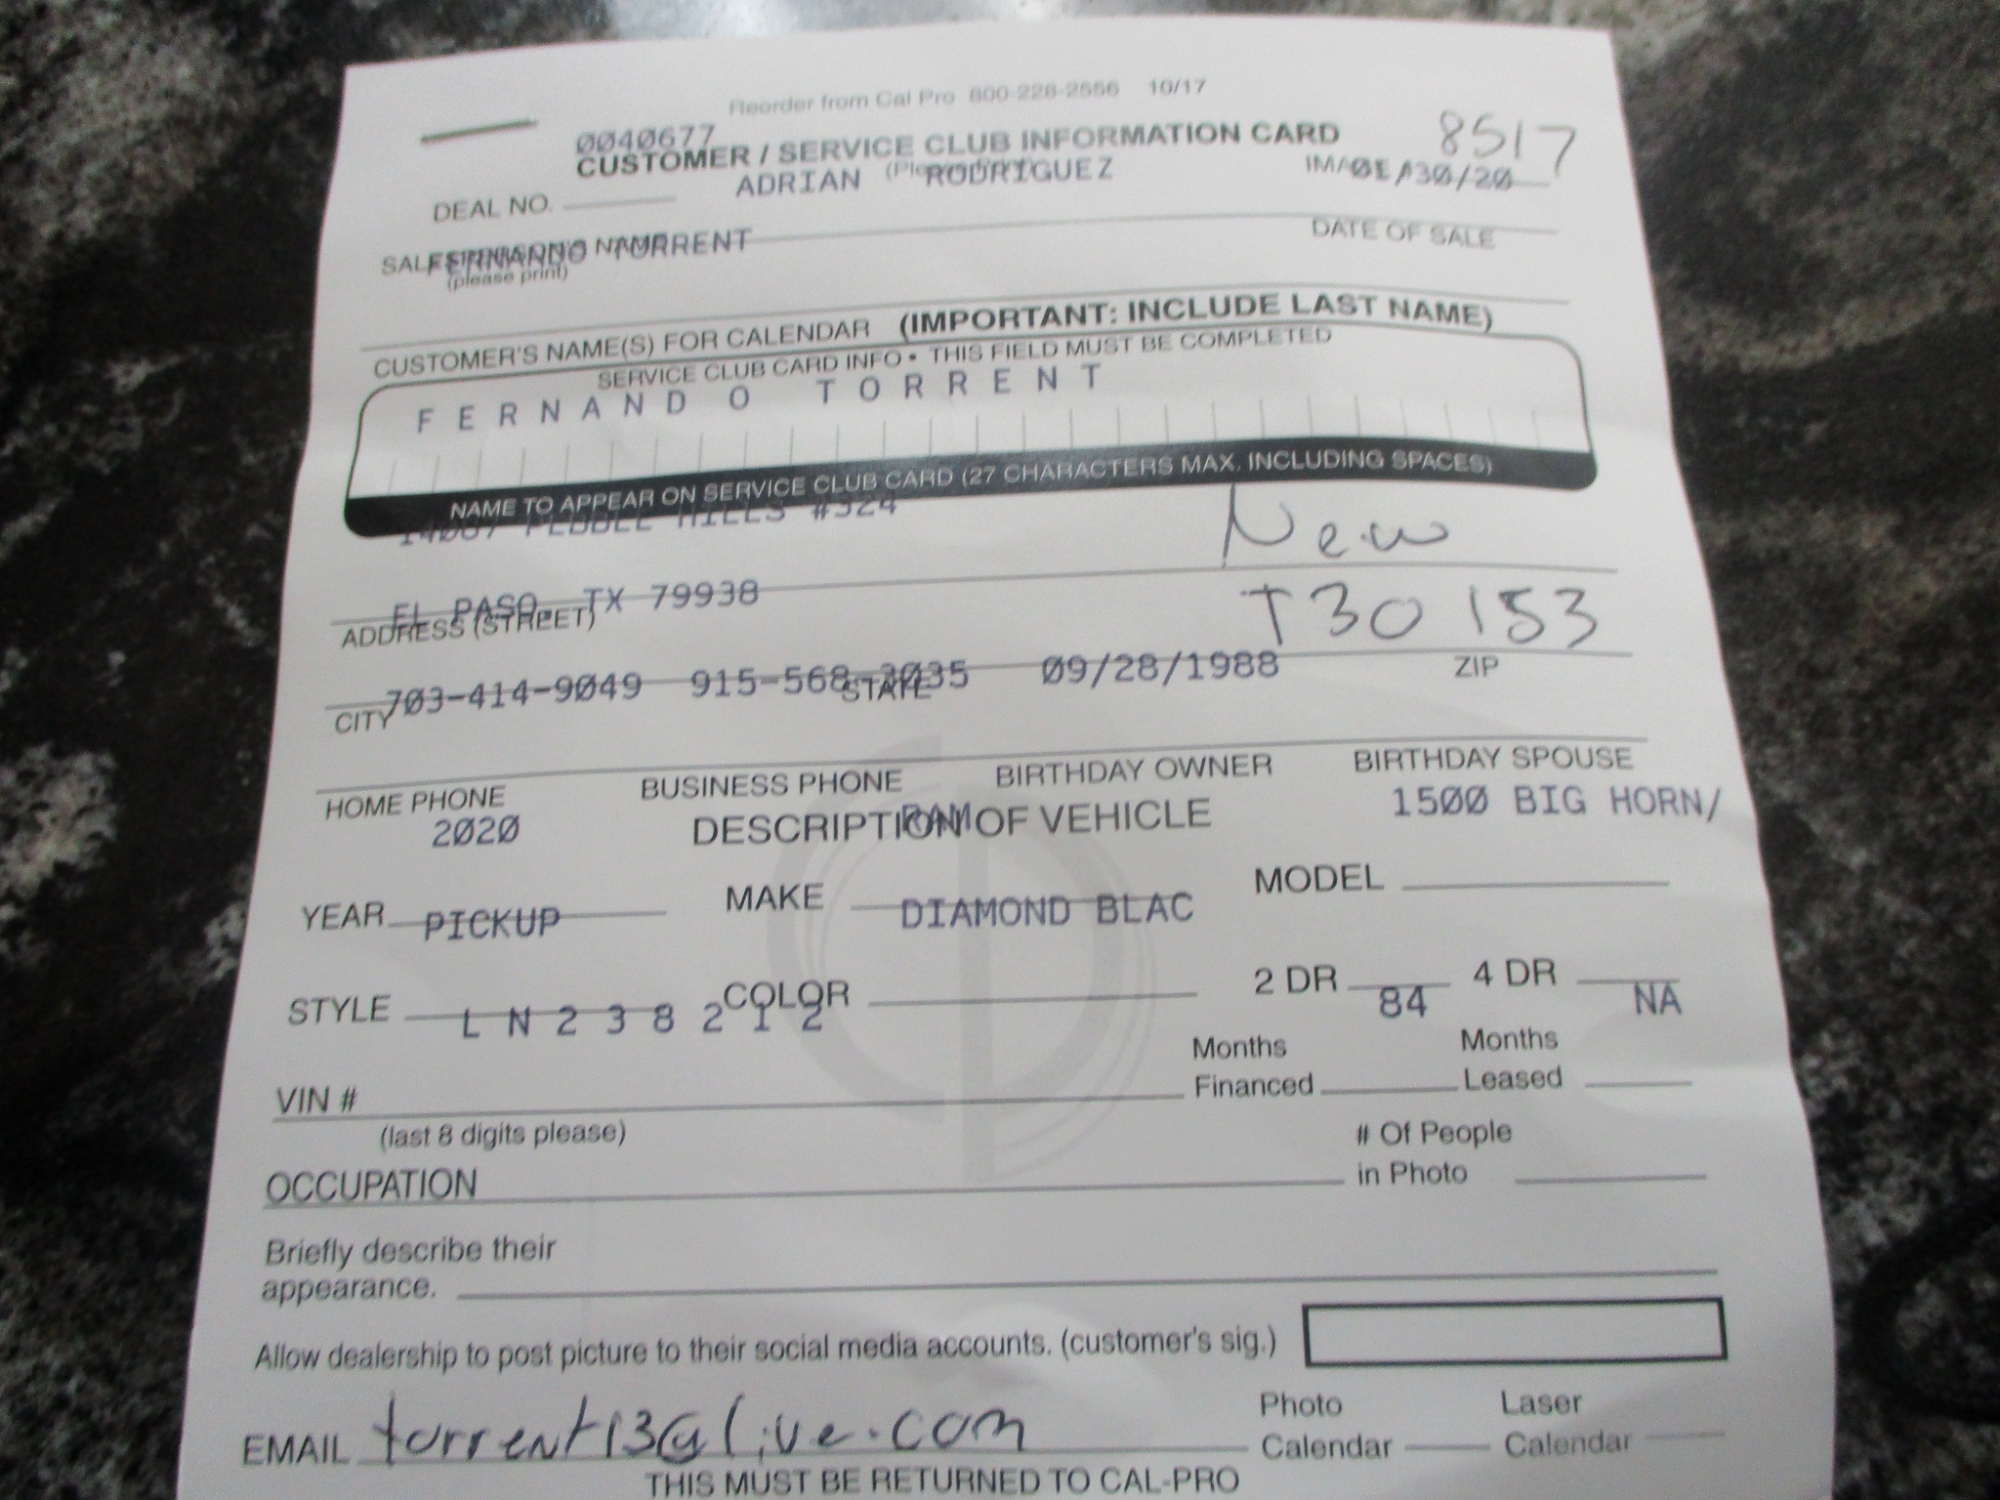 Reorder from Cal Pro 800-228-2556 10/17
0040677
CUSTOMER / SERVICE CLUB INFORMATION CARD 8517
ADRIAN RODRIGUEZ
DEAL NO.
FERNANDO TORRENT
SALESPERSON'S NAME DATE OF SALE
(please print)
CUSTOMER'S NAME(S) FOR CALENDAR (IMPORTANT: INCLUDE LAST NAME)
SERVICE CLUB CARD INFO • THIS FIELD MUST BE COMPLETED
FERNANDO TORRENT
NAME TO APPEAR ON SERVICE CLUB CARD (27 CHARACTERS MAX. INCLUDING SPACES)
#324
New
EL PASO, TX 79938 T30153
ADDRESS (STREET)
703-414-9049 915-568-3035 09/28/1988
CITY STATE ZIP
HOME PHONE BUSINESS PHONE BIRTHDAY OWNER BIRTHDAY SPOUSE
2020 RAM 1500 BIG HORN/
DESCRIPTION OF VEHICLE
YEAR MAKE MODEL
PICKUP DIAMOND BLAC
STYLE COLOR 2 DR 4 DR
LN238212 84 NA
VIN # Months Financed Months Leased
(last 8 digits please)
OCCUPATION # Of People in Photo
Briefly describe their
appearance.
Allow dealership to post picture to their social media accounts. (customer's sig.)
EMAIL torrent13@live.com Photo Calendar Laser Calendar
THIS MUST BE RETURNED TO CAL-PRO